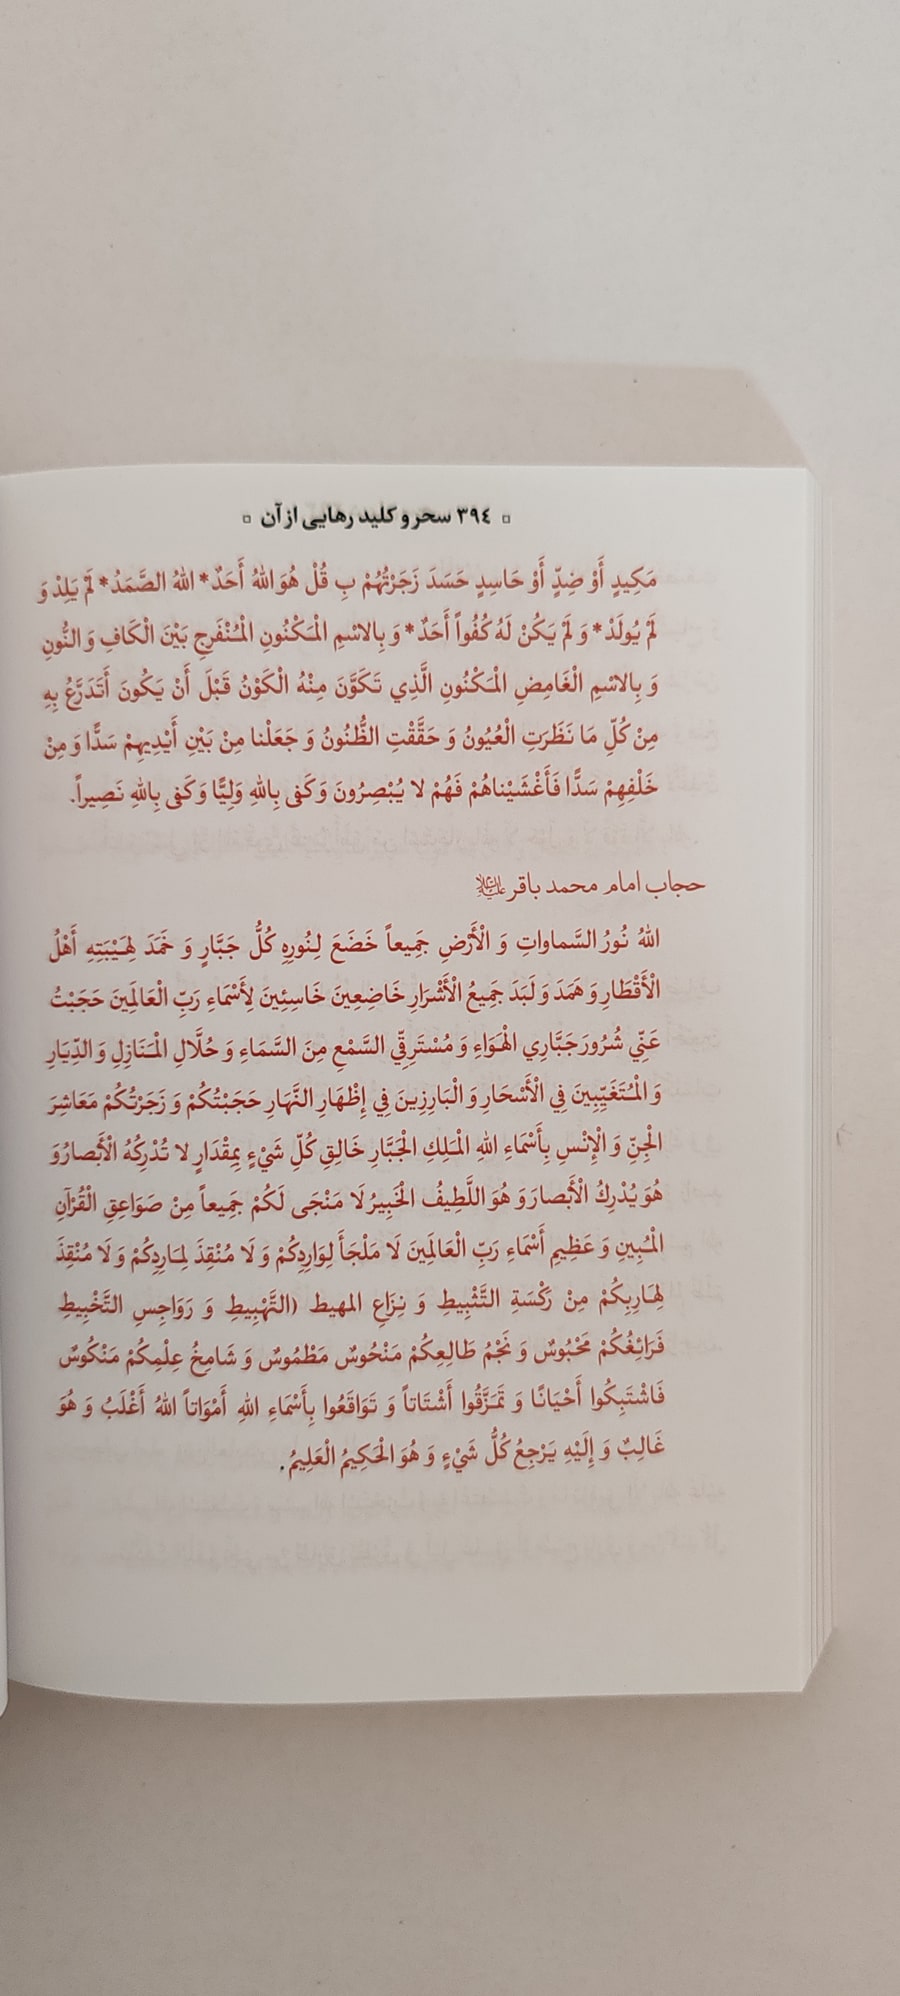 ▫ ٣٩٤ سحر و کلید رهایی از آن ▫
مَكِيدٍ أَوْ ضِدٍّ أَوْ حَاسِدٍ حَسَدَ زَجَرْتُهُمْ بِ قُلْ هُوَ اللهُ أَحَدٌ* اللهُ الصَّمَدُ* لَمْ يَلِدْ وَ
لَمْ يُولَدْ* وَ لَمْ يَكُنْ لَهُ كُفُواً أَحَدٌ* وَ بِالاسْمِ الْمَكْنُونِ الْمُنْفَرِجِ بَيْنَ الْكَافِ وَ النُّونِ
وَ بِالاسْمِ الْغَامِضِ الْمَكْنُونِ الَّذِي تَكَوَّنَ مِنْهُ الْكَوْنُ قَبْلَ أَنْ يَكُونَ أَتَدَرَّعُ بِهِ
مِنْ كُلِّ مَا نَظَرَتِ الْعُيُونُ وَ حَقَّقْتِ الظُّنُونُ وَ جَعَلْنا مِنْ بَيْنِ أَيْدِيهِمْ سَدًّا وَ مِنْ
خَلْفِهِمْ سَدًّا فَأَغْشَيْناهُمْ فَهُمْ لا يُبْصِرُونَ وَ كَفى بِاللهِ وَلِيًّا وَ كَفى بِاللهِ نَصِيراً.
حجاب امام محمد باقر علیه السلام
اللهُ نُورُ السَّماواتِ وَ الْأَرْضِ جَمِيعاً خَضَعَ لِنُورِهِ كُلُّ جَبَّارٍ وَ خَمَدَ لِهَيْبَتِهِ أَهْلُ
الْأَقْطَارِ وَ هَمَدَ وَ لَبَدَ جَمِيعُ الْأَشْرَارِ خَاضِعِينَ خَاسِئِينَ لِأَسْمَاءِ رَبِّ الْعَالَمِينَ حَجَبْتُ
عَنِّي شُرُورَ جَبَّارِي الْهَوَاءِ وَ مُسْتَرِقِّي السَّمْعِ مِنَ السَّمَاءِ وَ حُلَّالِ الْمَنَازِلِ وَ الدِّيَارِ
وَ الْمُتَغَيِّبِينَ فِي الْأَسْحَارِ وَ الْبَارِزِينَ فِي إِظْهَارِ النَّهَارِ حَجَبْتُكُمْ وَ زَجَرْتُكُمْ مَعَاشِرَ
الْجِنِّ وَ الْإِنْسِ بِأَسْمَاءِ اللهِ الْمَلِكِ الْجَبَّارِ خَالِقِ كُلِّ شَيْءٍ بِمِقْدَارٍ لا تُدْرِكُهُ الْأَبْصارُ وَ
هُوَ يُدْرِكُ الْأَبْصارَ وَ هُوَ اللَّطِيفُ الْخَبِيرُ لَا مَنْجَى لَكُمْ جَمِيعاً مِنْ صَوَاعِقِ الْقُرْآنِ
الْمُبِينِ وَ عَظِيمِ أَسْمَاءِ رَبِّ الْعَالَمِينَ لَا مَلْجَأَ لِوَارِدِكُمْ وَ لَا مُنْقِذَ لِمَارِدِكُمْ وَ لَا مُنْقِذَ
لِهَارِبِكُمْ مِنْ رَكْسَةِ التَّثْبِيطِ وَ نِزَاعِ المهيط (التَّهْبِيطِ وَ رَوَاجِسِ التَّخْبِيطِ
فَرَائِغُكُمْ مَحْبُوسٌ وَ نَجْمُ طَالِعِكُمْ مَنْحُوسٌ مَطْمُوسٌ وَ شَامِخُ عِلْمِكُمْ مَنْكُوسٌ
فَاشْتَبِكُوا أَحْيَانًا وَ تَمَزَّقُوا أَشْتَاتاً وَ تَوَاقَعُوا بِأَسْمَاءِ اللهِ أَمْوَاتاً اللهُ أَغْلَبُ وَ هُوَ
غَالِبٌ وَ إِلَيْهِ يَرْجِعُ كُلُّ شَيْءٍ وَ هُوَ الْحَكِيمُ الْعَلِيمُ.